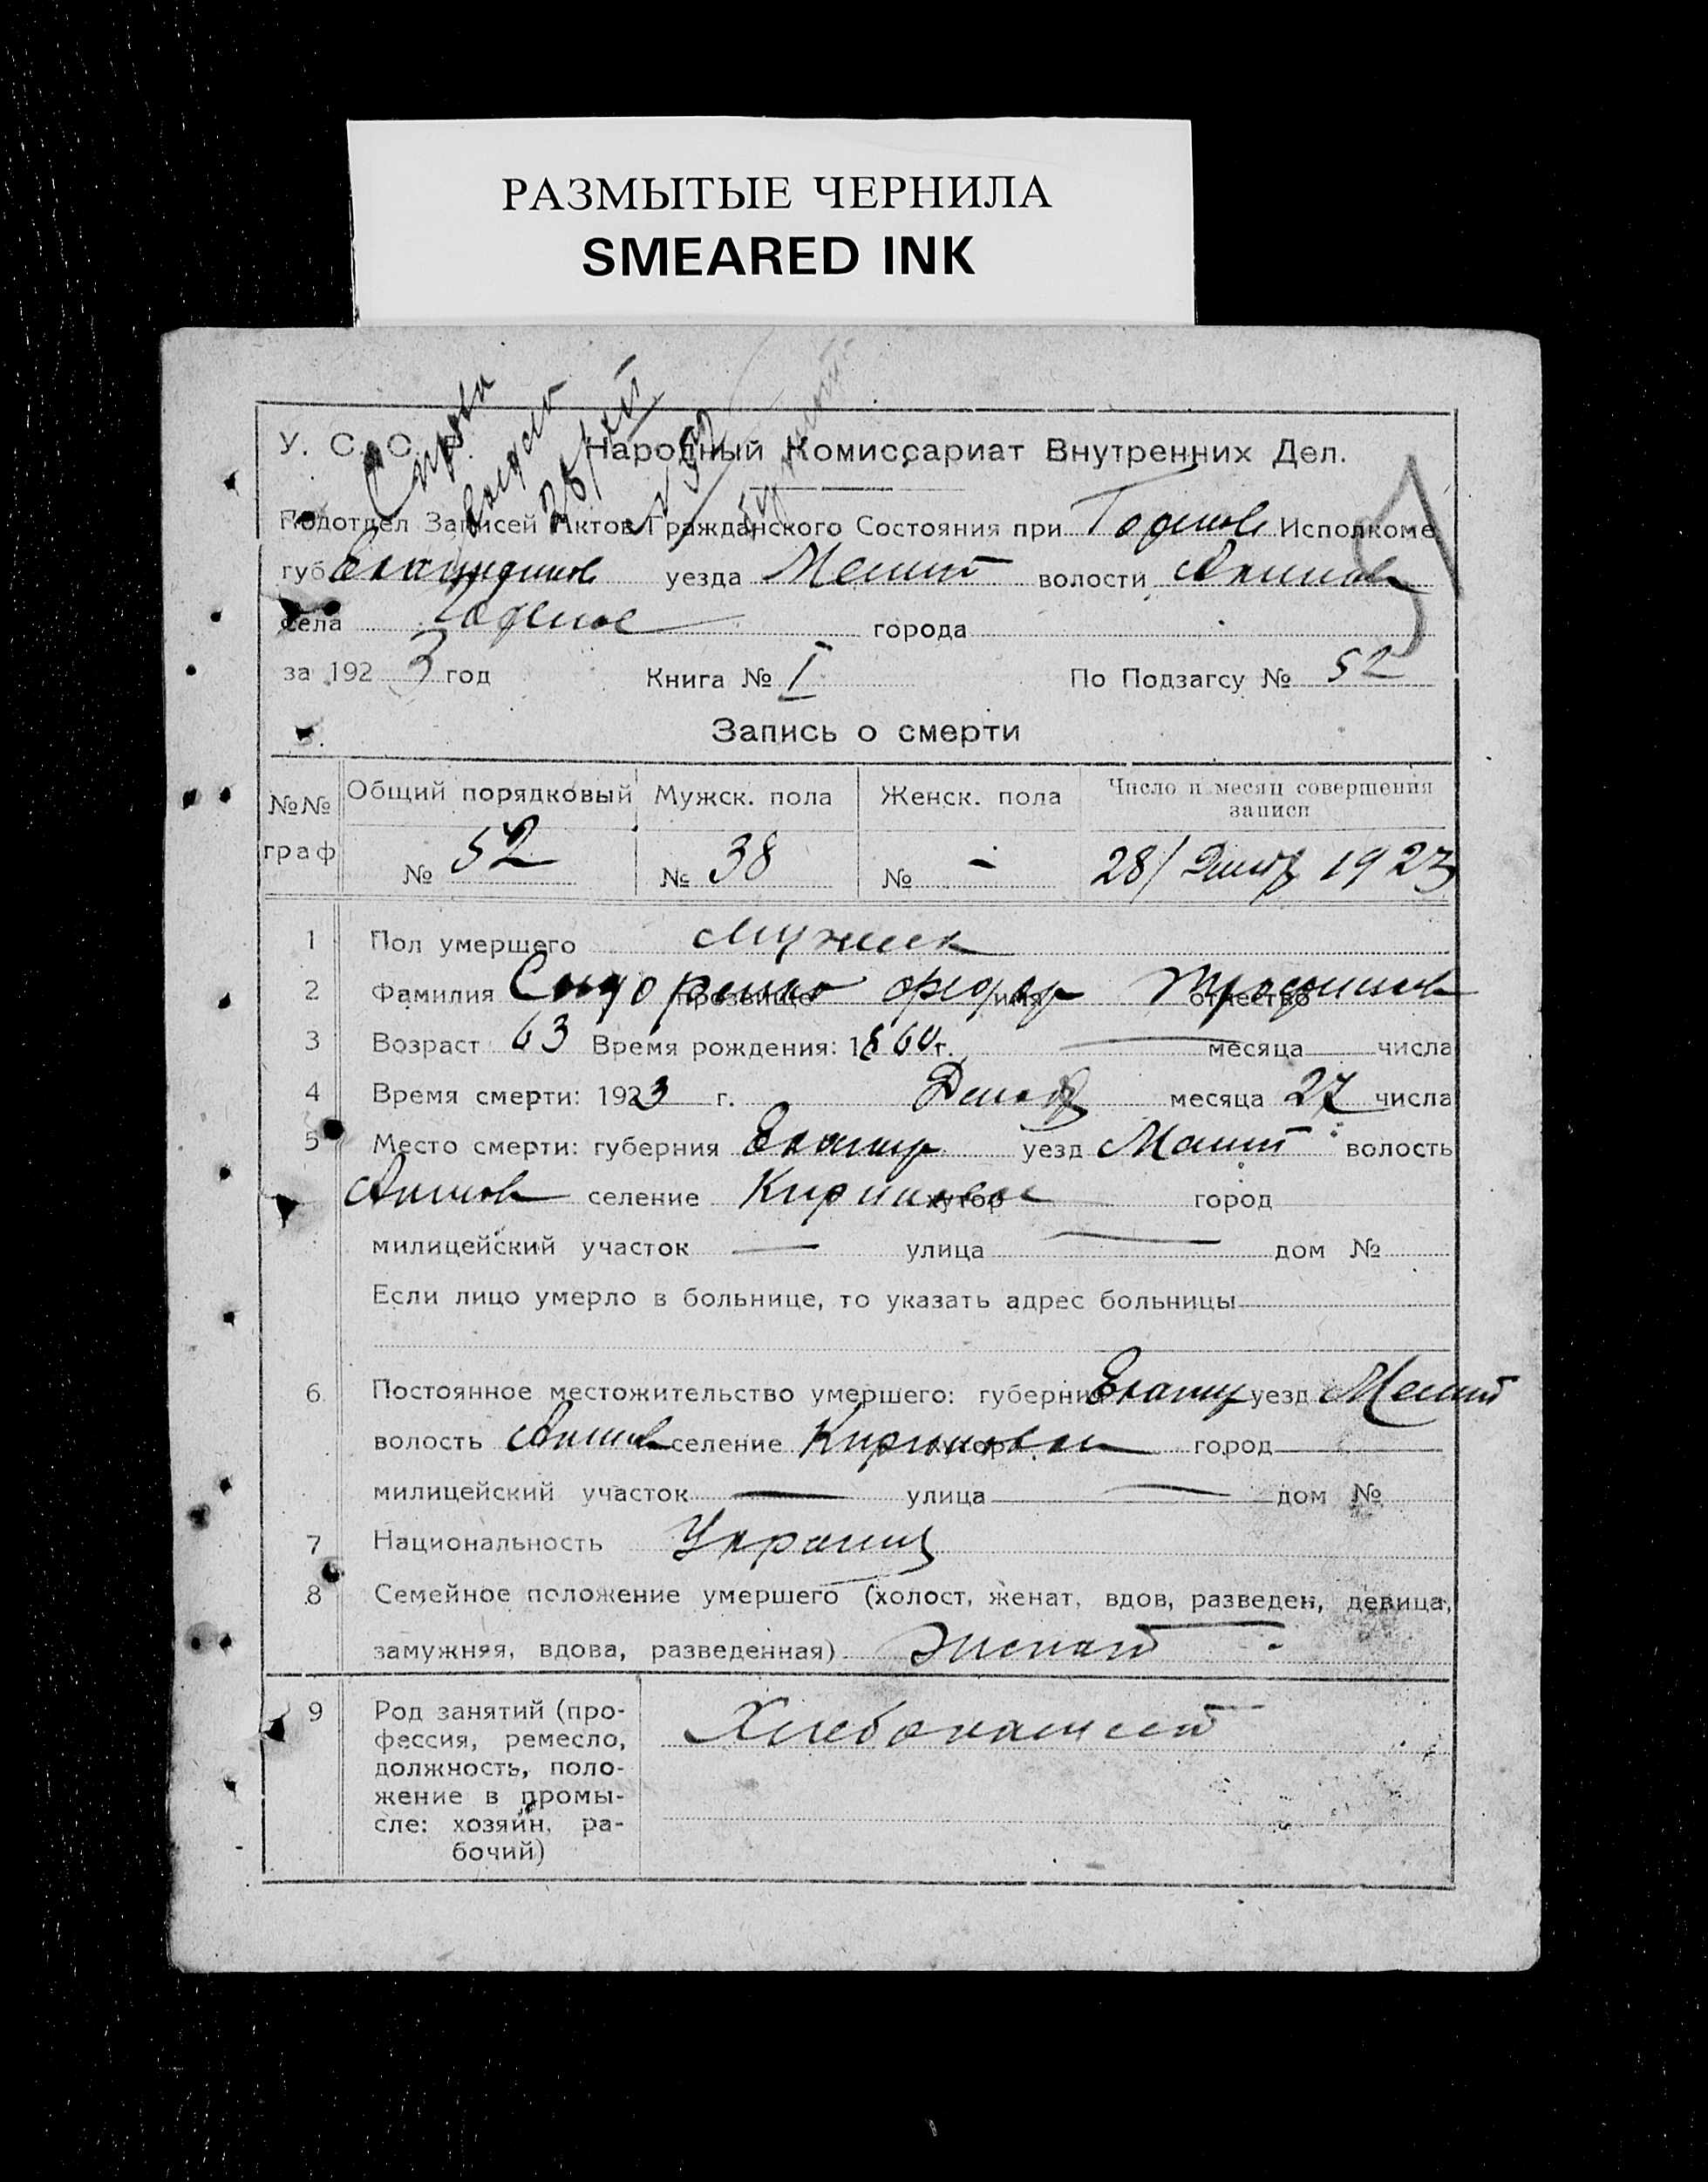 РАЗМЫТЫЕ ЧЕРНИЛА
SMEARED INK
У. С. С. Р. Народный Комиссариат Внутренних Дел.
Подотдел Записей Актов Гражданского Состояния при Исполкоме
губ уезда Мелит волости Акимов
села города
за 1923 год Книга № I По Подзагсу № 52
Запись о смерти
№№ граф Общий порядковый Мужск. пола Женск. пола Число и месяц совершения записи
№ 52 № 38 № - 28/ Декаб 1923
1 Пол умершего Мужск
2 Фамилия Сидоренко прозвище Федор имя отчество
3 Возраст 63 Время рождения: 1860 г. — месяца числа
4 Время смерти: 1923 г. Декаб месяца 27 числа
5 Место смерти: губерния Екатер уезд Мелит волость
Акимов селение Кирпиловое хутор город
милицейский участок — улица — дом №
Если лицо умерло в больнице, то указать адрес больницы
6. Постоянное местожительство умершего: губерния Екатер уезд Мелит
волость Акимов селение хутор город
милицейский участок — улица — дом №
7 Национальность Украинц
8 Семейное положение умершего (холост, женат, вдов, разведен, девица,
замужняя, вдова, разведенная) Женат
9 Род занятий (про- Хлебопашест
фессия, ремесло,
должность, поло-
жение в промы-
сле: хозяин, ра-
бочий)